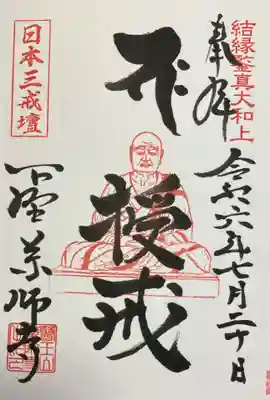 結縁鑒真大和上
奉拝
令和六年七月二十日
授戒
日本三戒壇
下埜薬師寺